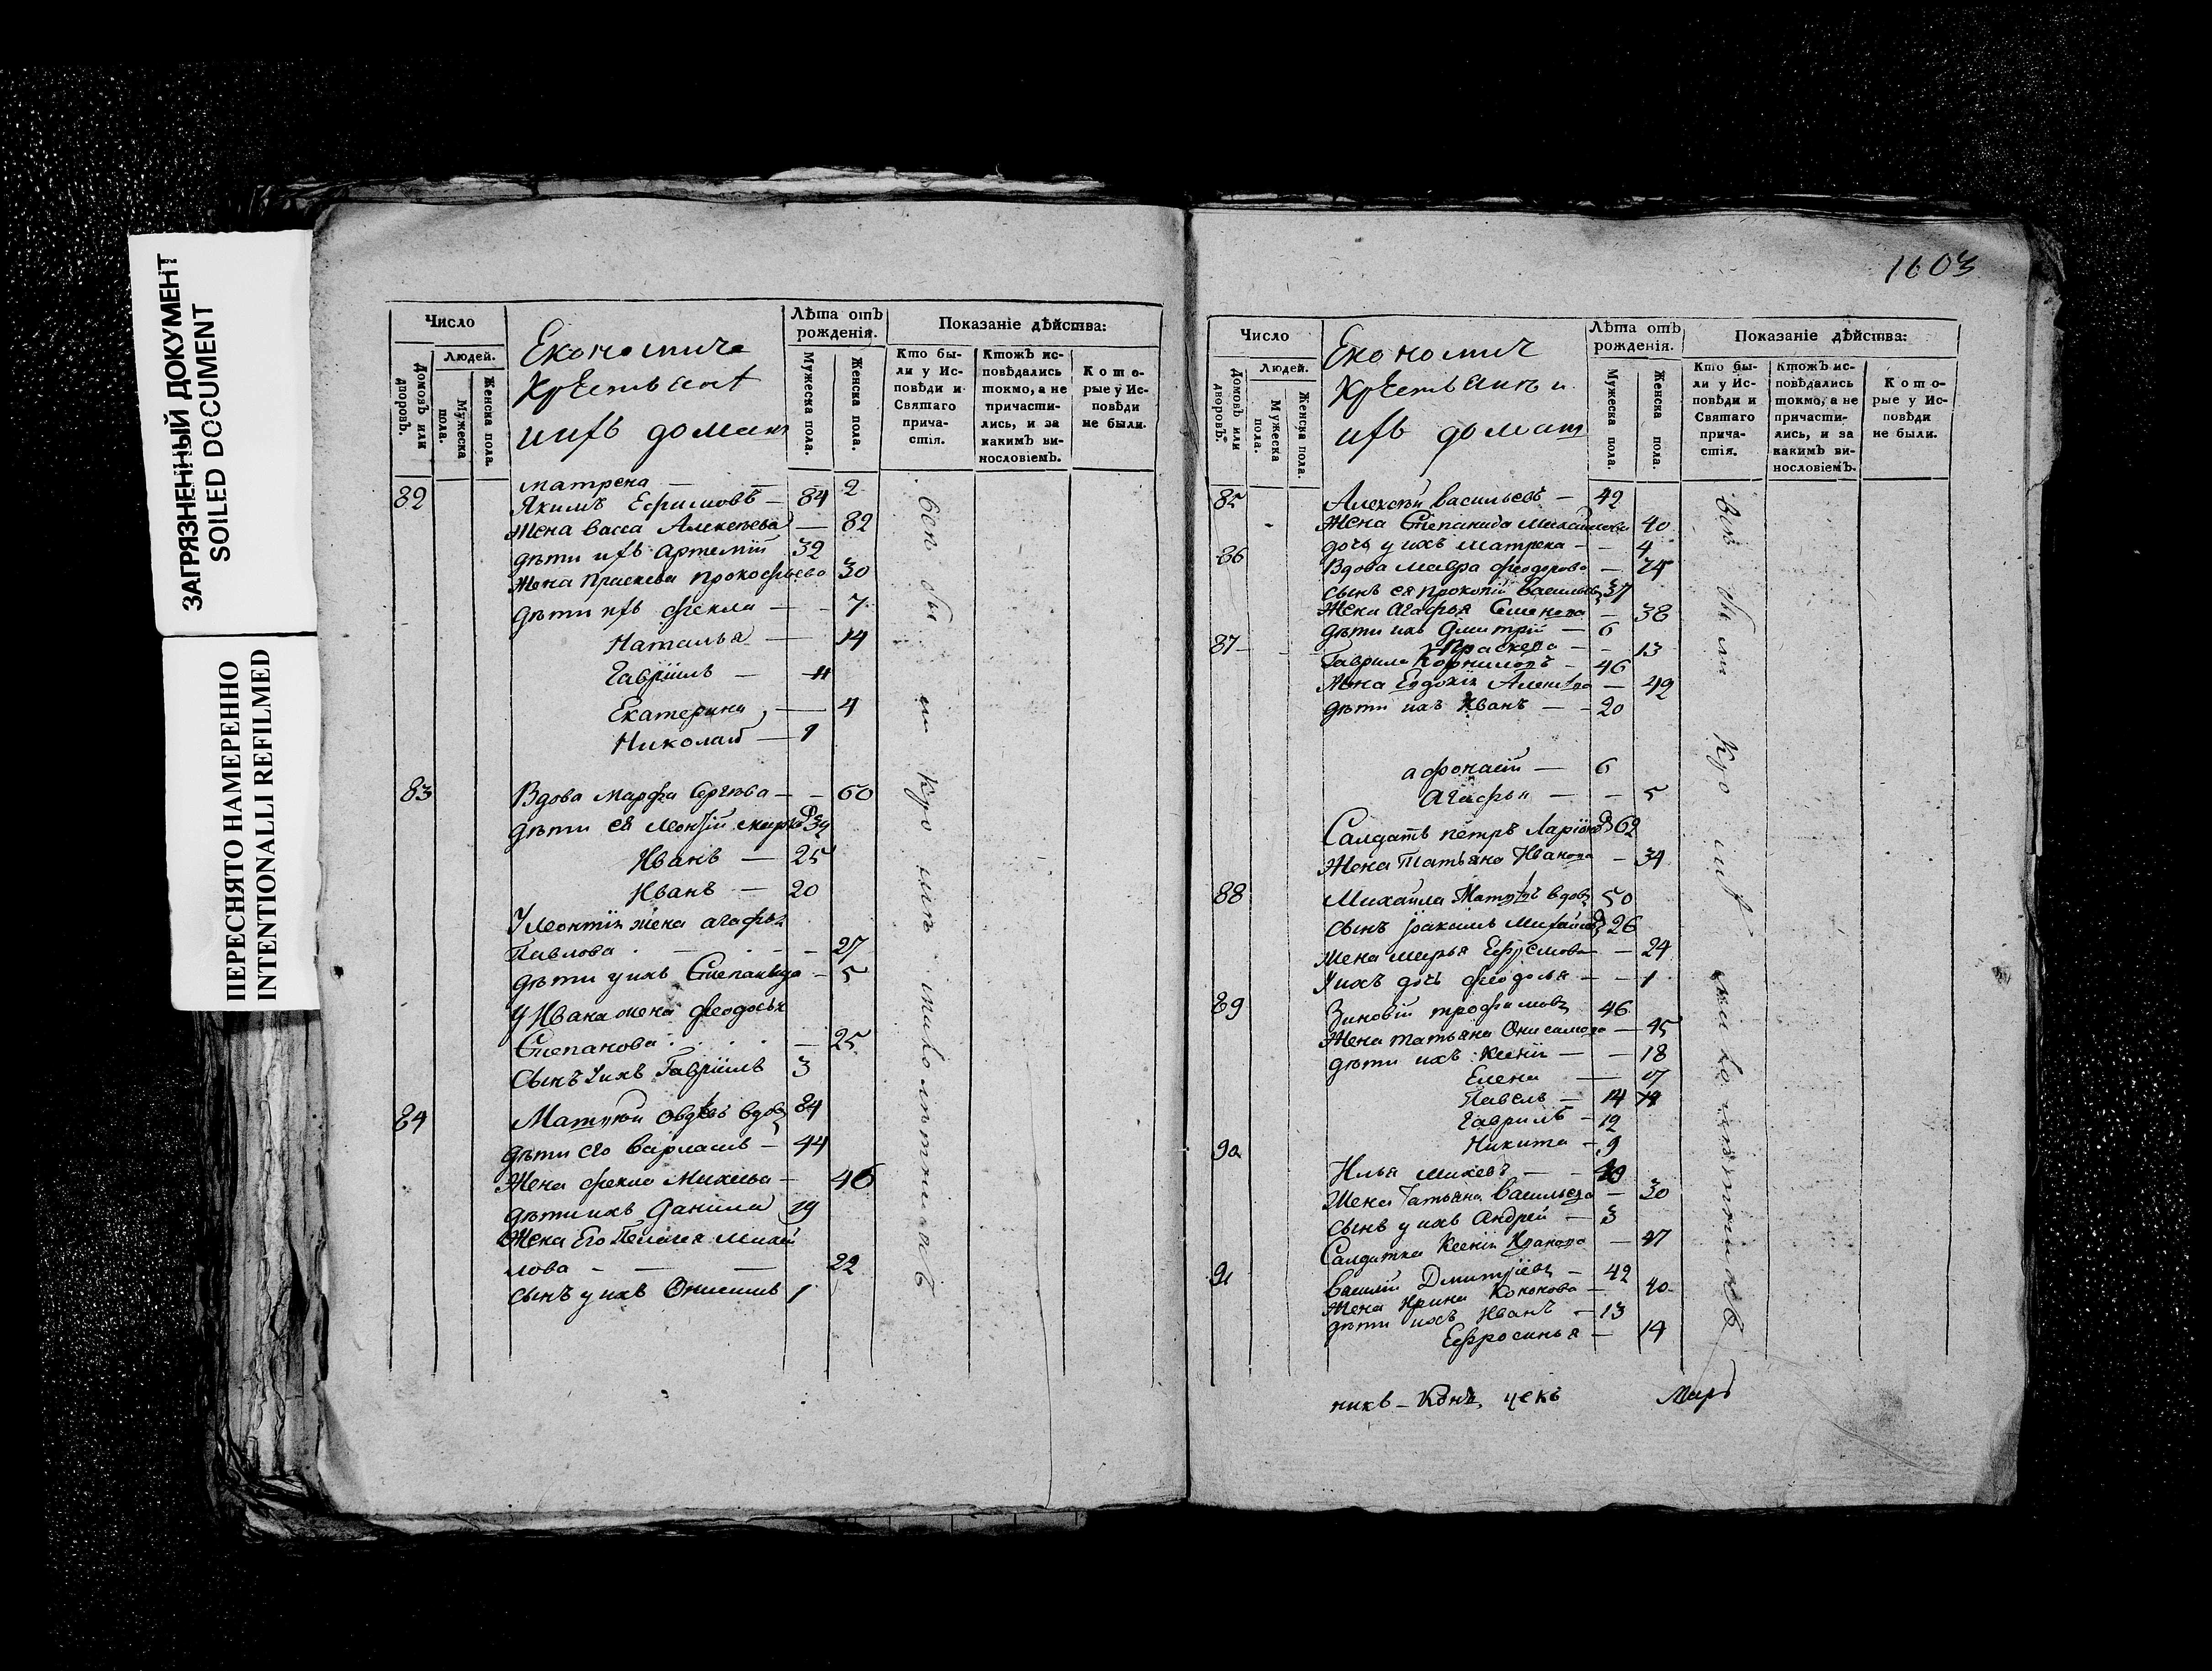 ЗАГРЯЗНЕННЫЙ ДОКУМЕНТ
SOILED DOCUMENT
ПЕРЕСНЯТО НАМЕРЕННО
INTENTIONALLI REFILMED
Число
Людей.
Домовъ или дворовъ.
Мужеска пола.
Женска пола.
Економиче
Крестьянѣ
ихъ домаш
Лѣта отъ рожденія.
Мужеска пола.
Женска пола.
Показаніе дѣйства:
Кто бы-
ли у Ис-
повѣди и
Святаго
прича-
стія.
Ктожъ ис-
повѣдались
токмо, а не
причасти-
лись, и за
какимъ ви-
нословіемъ.
Кото-
рые у Ис-
повѣди
не были.
матрена — 2
82 Якимъ Ефимовъ — 84
Жена васса Алексѣева — 82
дѣти ихъ Артемій 32
Жена Праскева прокофьева 30
дѣти ихъ фекла — 7
Наталья — 14
Гавріилъ — 11
Екатерина — 4
Николай — 1
83 Вдова Марфа Сергѣева — 60
дѣти ея Леонтій 34
Иванъ — 25
Иванъ — 20
У Леонтія жена агафья
Павлова — 27
дѣти у ихъ Степанида — 5
У Ивана жена феодосья
Степанова — 25
Сынъ у ихъ Гавріилъ 3
84 Матѳей вдов 84
дѣти его варламъ — 44
Жена фекла Михеева — 46
дѣти ихъ Данила 19
Жена Его Пелагея Михай
лова — 22
сынъ у ихъ Онисимъ 1
1603
Число
Людей.
Домовъ или дворовъ.
Мужеска пола.
Женска пола.
Економич
Крестьянъ и
ихъ домаш
Лѣта отъ рожденія.
Мужеска пола.
Женска пола.
Показаніе дѣйства:
Кто бы-
ли у Ис-
повѣди и
Святаго
прича-
стія.
Ктожъ ис-
повѣдались
токмо, а не
причасти-
лись, и за
какимъ ви-
нословіемъ.
Кото-
рые у Ис-
повѣди
не были.
85 Алексѣй васильевъ — 42
Жена Степанида Михайлова 40
дочь у ихъ матрена — 4
86 Вдова мавра феодорова — 75
сынъ ея прокопій васильевъ 37
Жена агафья Семенова — 38
дѣти ихъ Дмитрій — 6
Праскева — 13
87 Гаврила Корниловъ — 46
Жена Евдокія — 49
дѣти ихъ Иванъ — 20
афонасій — 6
Агафья — 5
Салдатъ петръ Ларіоновъ 62
Жена Татьяна Иванова — 34
88 Михайла вдовъ 50
сынъ Іоакимъ 26
жена марья Ефремова — 24
У ихъ дочь феодосья — 1
89 Зиновій трофимовъ 46
Жена татьяна — 45
дѣти ихъ Ксенія — 18
Елена — 17
Павелъ — 14
Гаврилъ — 12
Никита — 9
90 Илья михевъ —
Жена Татьяна васильева — 30
сынъ у ихъ Андрей — 3
Салдатка Ксенія — 47
91 Василій Дмитріевъ — 42
Жена Ирина Кононова — 40
дѣти ихъ Иванъ — 13
Ефросинья — 14